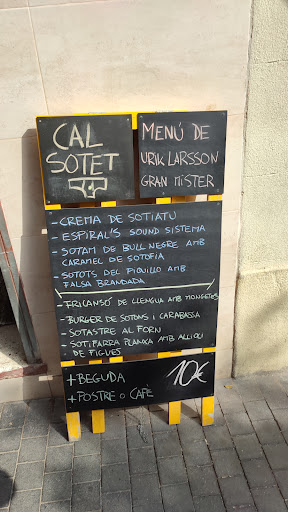 CAL
SOTET
MENÚ DE
URIK LARSSON
GRAN MÍSTER
- CREMA DE SOTIATU
- ESPIRAL'S SOUND SISTEMA
- SOTAM DE BULL NEGRE AMB
CARAMEL DE SOTOFIA
- SOTOTS DEL PIQUILLO AMB
FALSA BRANDADA
- FRICANSÓ DE LLENGUA AMB MONGETES
- BURGER DE SOTONS I CARABASSA
- SOTASTRE AL FORN
- SOTIFARRA PLANXA AMB ALLIOLI
DE FIGUES
+ BEGUDA
+ POSTRE O CAFÈ
10€